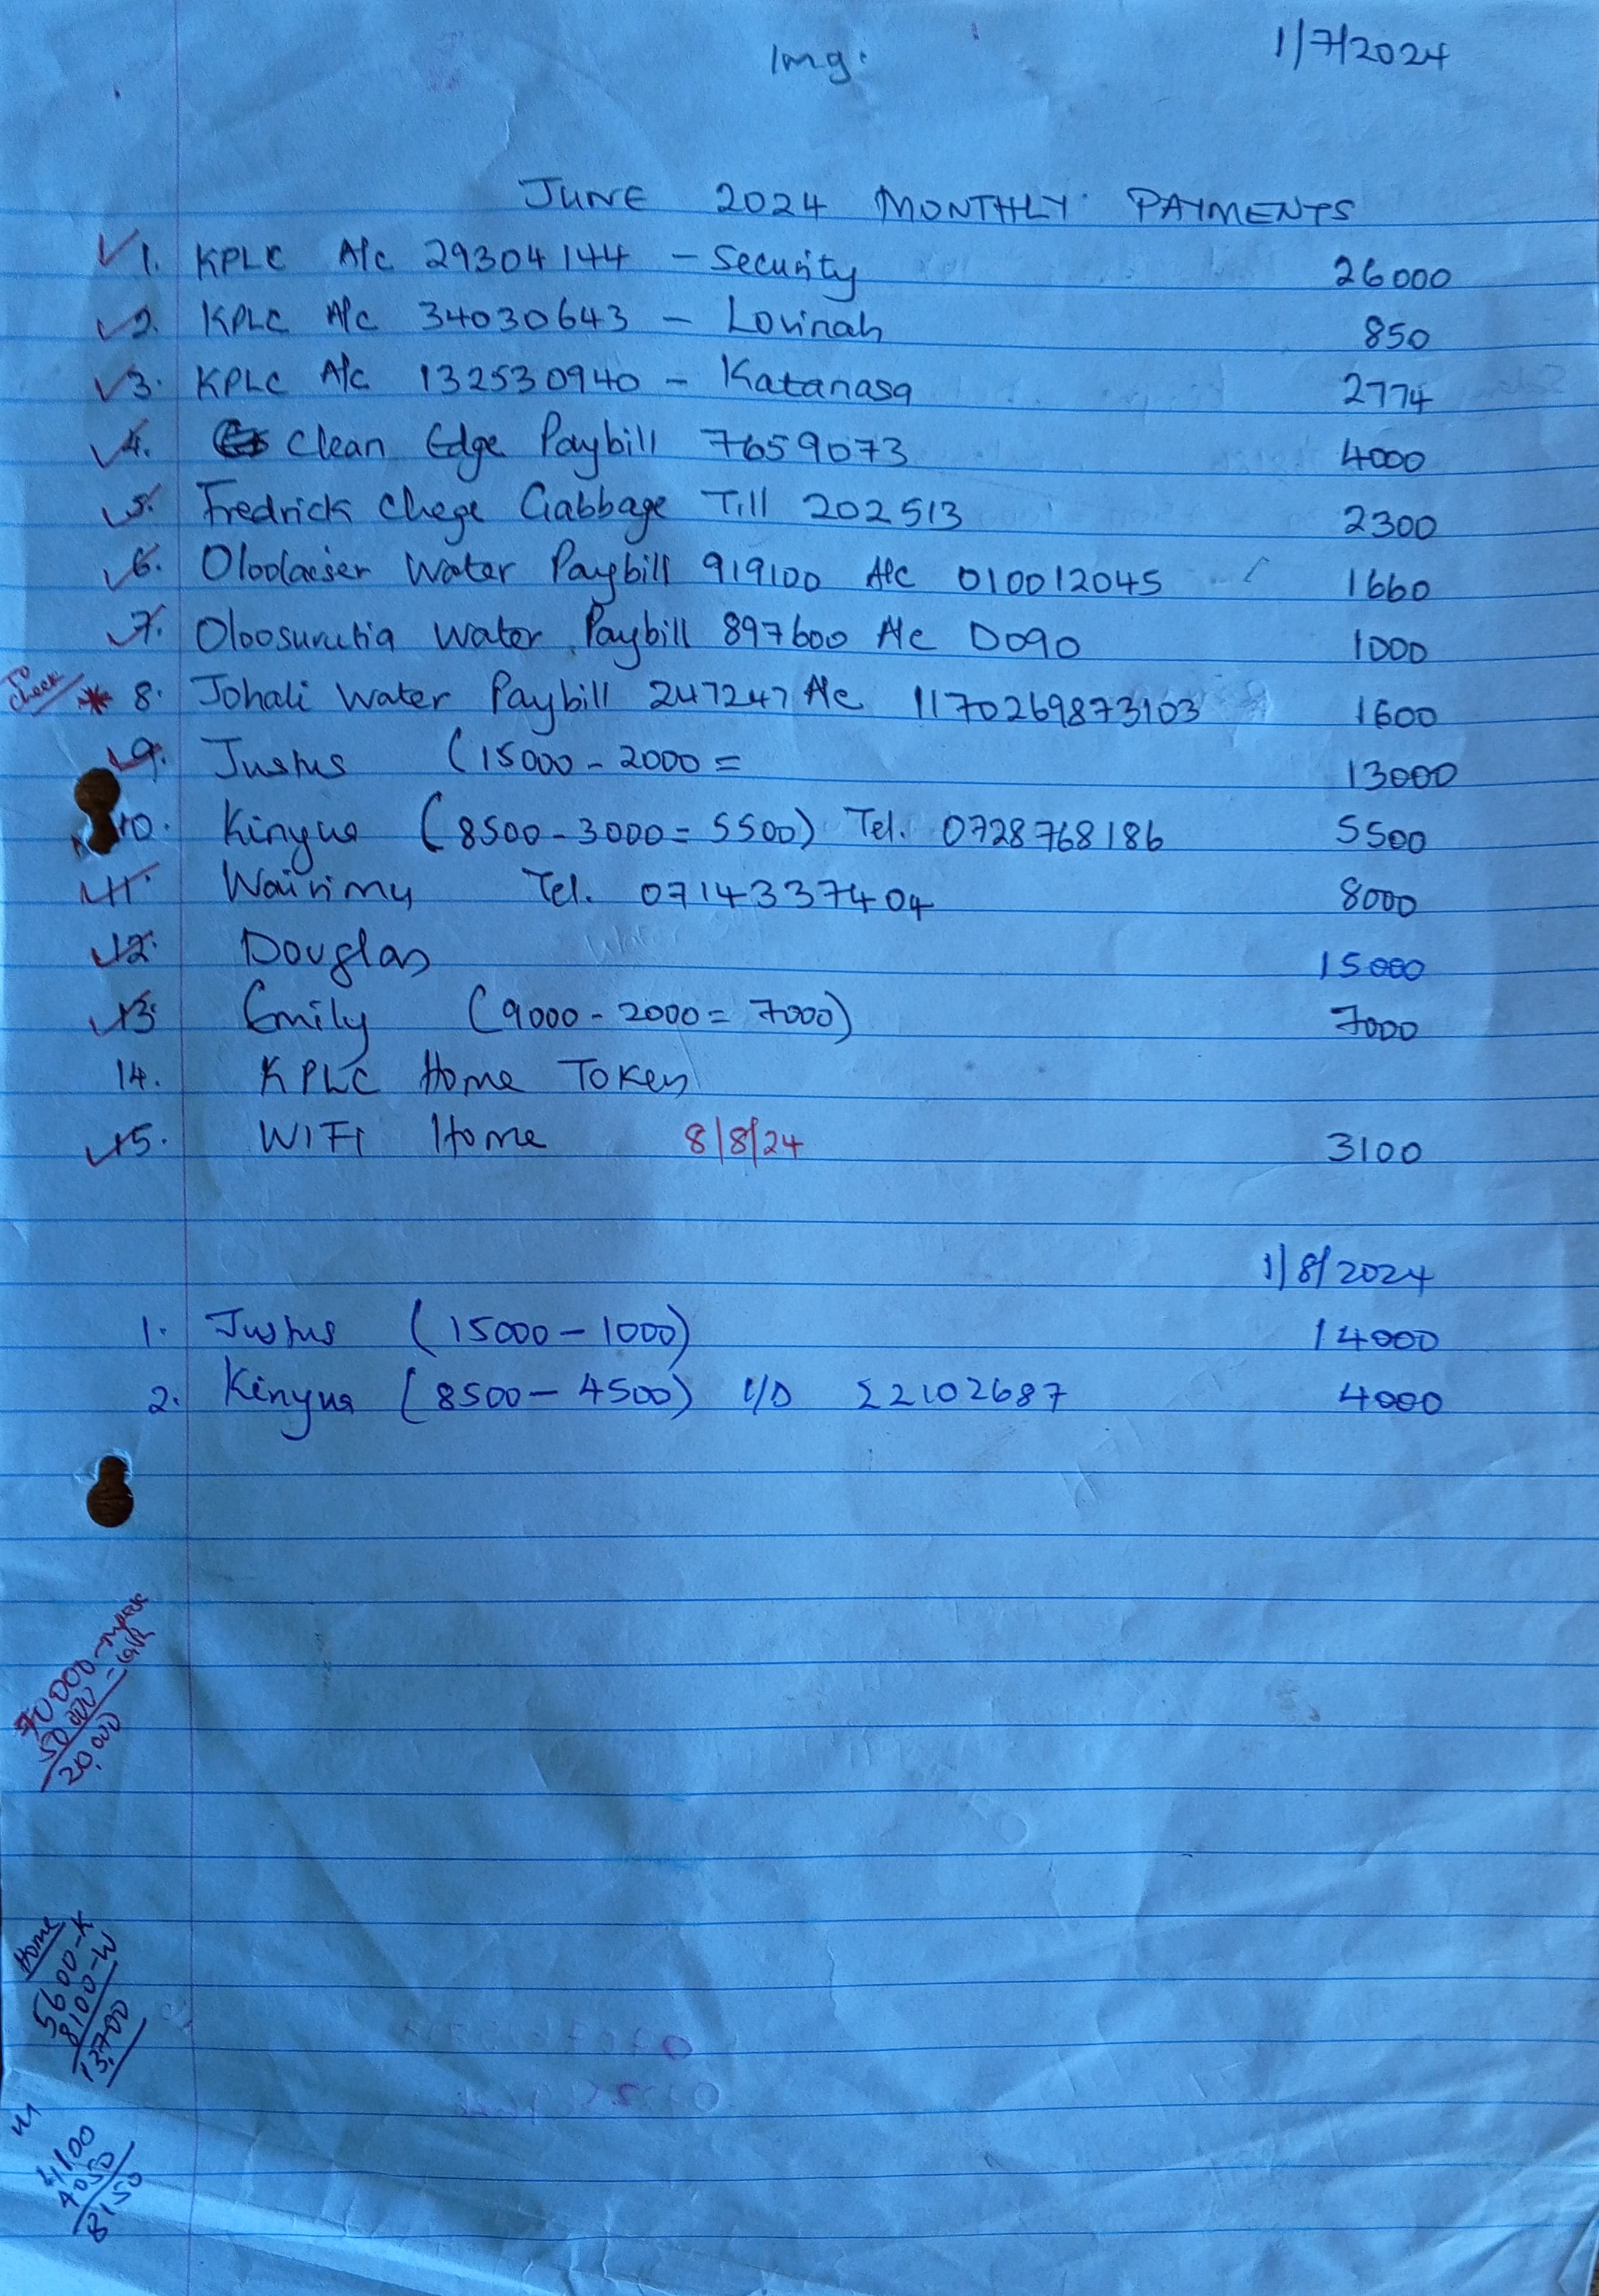 Img.
1/7/2024
JUNE 2024 MONTHLY PAYMENTS
1. KPLC A/c 29304144 - Security 26000
2. KPLC A/c 34030643 - Lovinah 850
3. KPLC A/c 132530940 - Katanasa 2774
4. Clean Edge Paybill 7659073 4000
5. Fredrick Chege Gabbage Till 202513 2300
6. Oloolaiser Water Paybill 919100 A/c 010012045 1660
7. Oloosurutia Water Paybill 897600 A/c D090 1000
To check * 8. Johali Water Paybill 247247 A/c 1170269873103 1600
9. Justus (15000 - 2000 = 13000
10. Kinyua (8500 - 3000 = 5500) Tel. 0728768186 5500
11. Wairimu Tel. 0714337404 8000
12. Douglas 15000
13. Emily (9000 - 2000 = 7000) 7000
14. KPLC Home Token
15. WIFI Home 8/8/24 3100
1/8/2024
1. Justus (15000 - 1000) 14000
2. Kinyua (8500 - 4500) I/D 22102687 4000
70000
50000
20,000
Home
5600 - K
8100 - W
13,700
4100
4050
8150